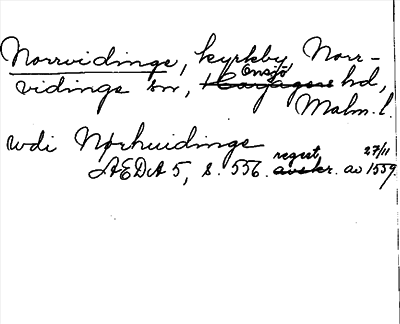 Norrvidinge, kyrkby, Norr-
Onsjö
vidinge sn, Harjagers hd,
Malm. l.
udi Nørhuidinge
regest 27/11
ÆDA 5, s. 556. avskr. av 1559.